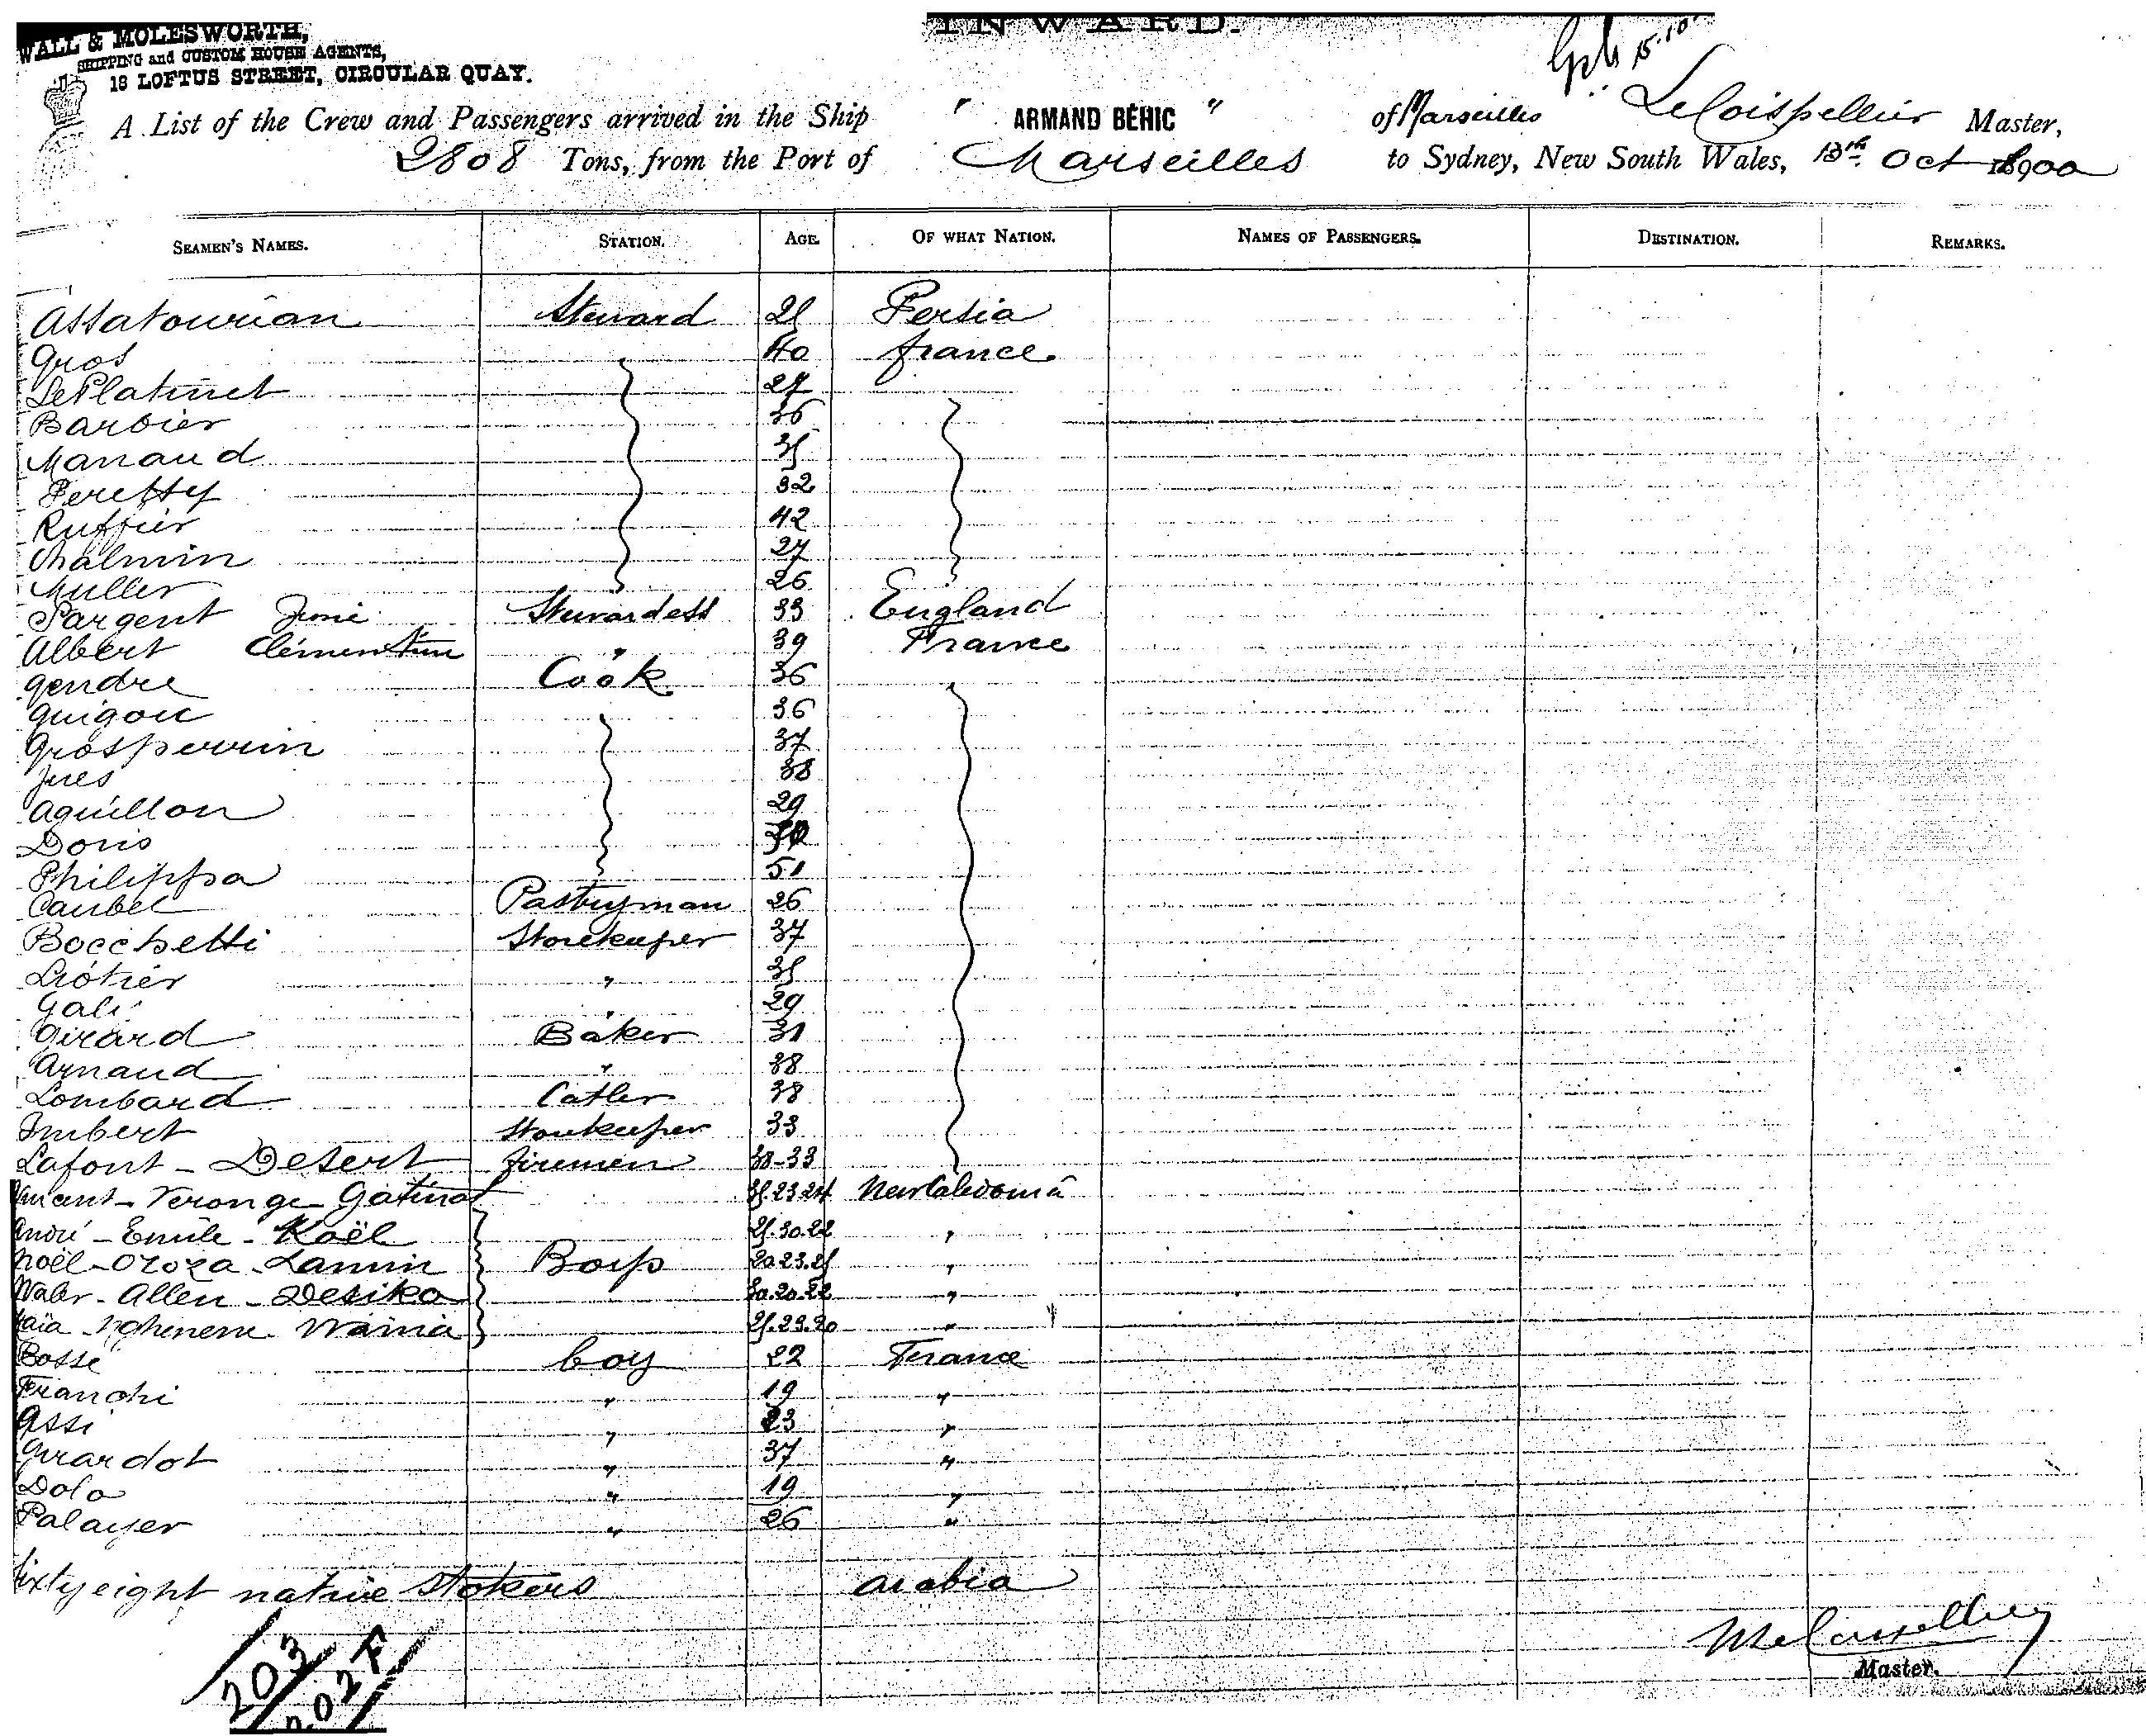 INWARD.
WALL & MOLESWORTH,
SHIPPING and CUSTOM HOUSE AGENTS,
18 LOFTUS STREET, CIRCULAR QUAY.
15.10
A List of the Crew and Passengers arrived in the Ship " ARMAND BÉHIC " of Marseilles Master,
2808 Tons, from the Port of Marseilles to Sydney, New South Wales, 13th Oct 1900
SEAMEN'S NAMES. STATION. AGE. OF WHAT NATION. NAMES OF PASSENGERS. DESTINATION. REMARKS.
Assatourian Steward 21 Persia
Gros 40 France
LePlatinet 27
Barbier 36
Manaud 35
Peretty 32
Ruffier 42
Chalmin 27
Muller 26
Sargent Stewardess 33 England
Albert Clémentine " 39 France
Gendre Cook 36
Guigou 36
Grosperrin 37
Jues 38
Aquillon 29
Doris
Philippa 51
Caubel Pastryman 26
Bocchetti Storekeeper 37
Liotier " 35
Gali " 29
Girard Baker 31
Arnaud " 38
Lombard Catler 38
Imbert Storekeeper 33
Lafont - Desert firemen 38-33
Vincent - Veronge - Gatinat 35.23.24 New Caledonia
André - Emile - Kaël 25.30.22 "
Noël - Oroza - Lamin Boys 20.23.25 "
Waler - Allen - Desiko 30.20.22 "
Nghenene - Wainia 25.23.20 "
Bosse boy 22 France
Franchi " 19 "
Assi " 23 "
Girardot " 37 "
Dolo " 19 "
Palayer " 26 "
Sixty eight native stokers Arabia
203
202 F
Master.